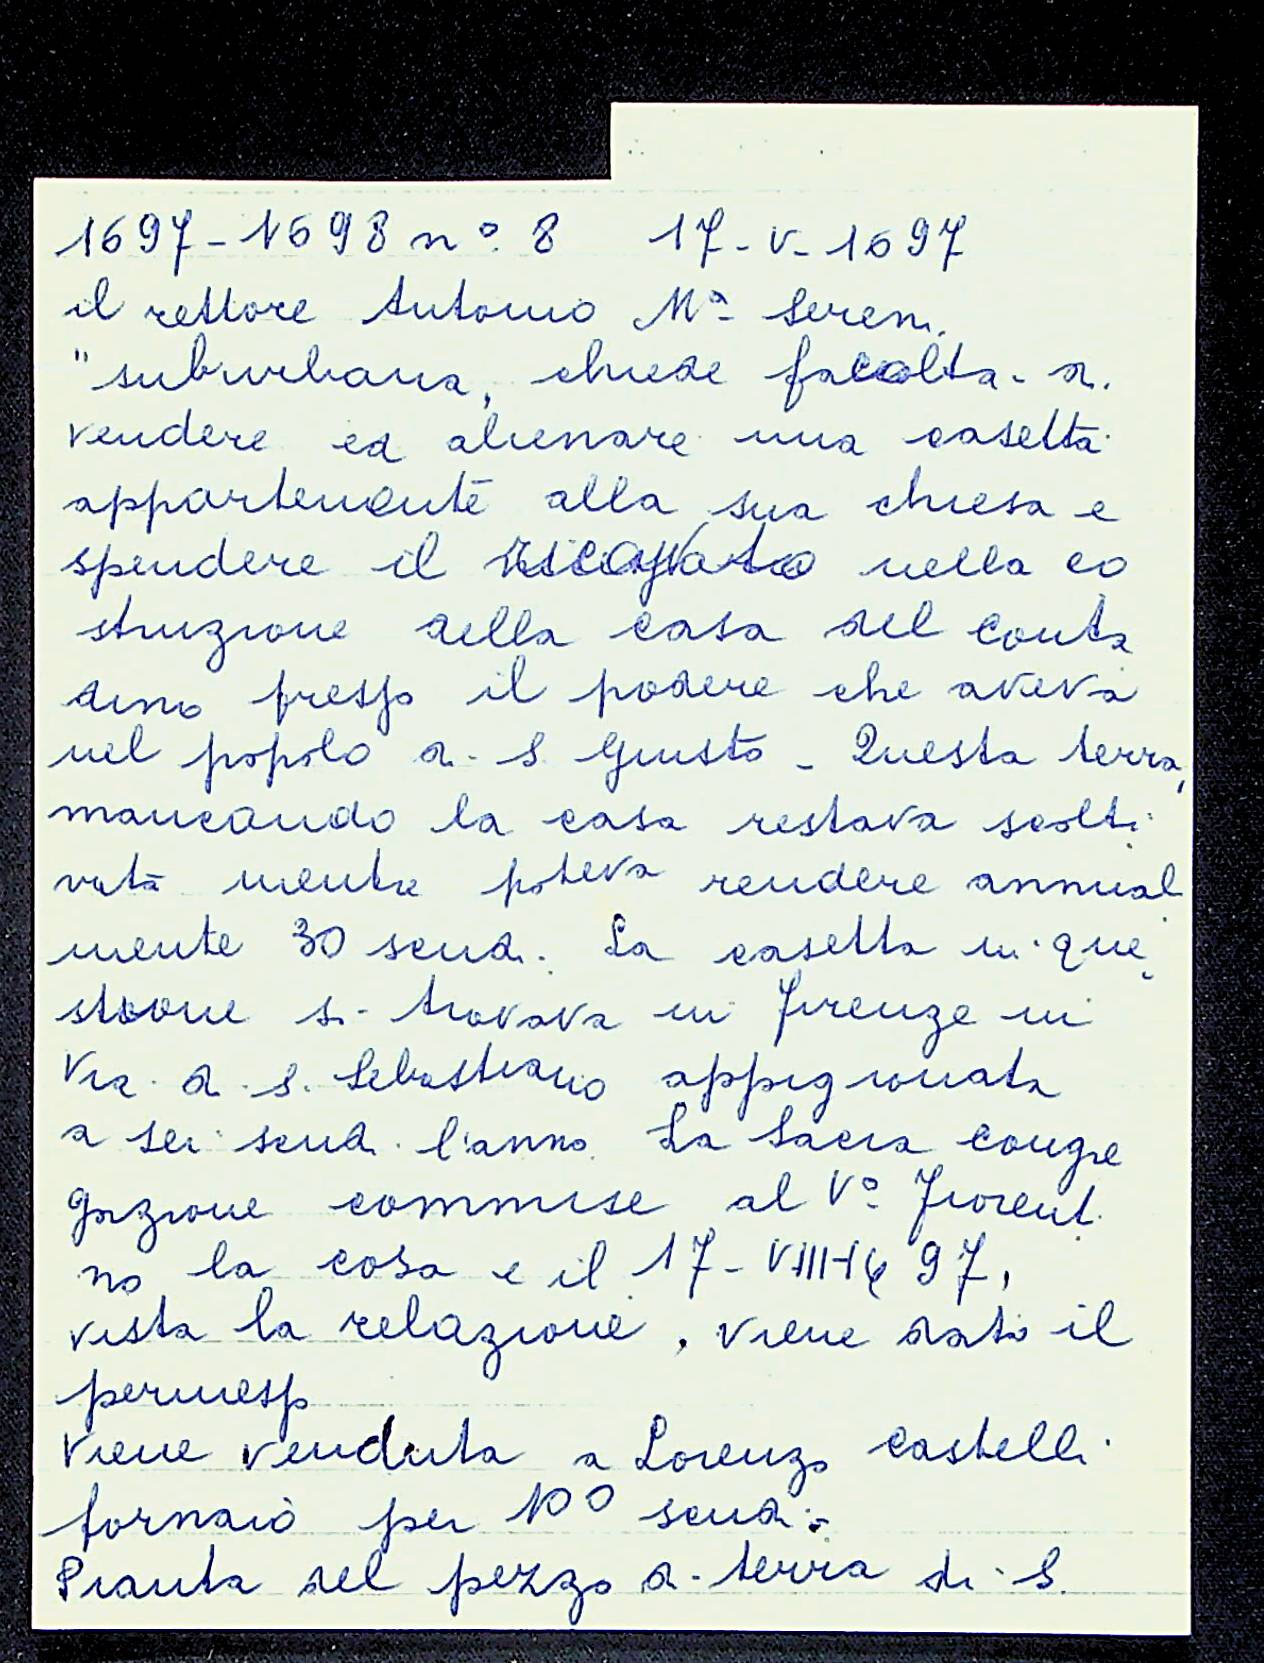 1697-1698 nº. 8 17-V-1697
il rettore Antonio Mª Sereni.
"suburbana, chiede facolta di
vendere ed alienare una casetta
appartenente alla sua chiesa e
spendere il ricavato nella co
struzione della casa del conta
dino presso il podere che aveva
nel popolo di S. Giusto - Questa terra,
mancando la casa restava scolti
vata mentre poteva rendere annual
mente 30 scudi. La casetta in que
stione si trovava in Firenze in
Via di S. Sebastiano appigionata
a sei scudi l'anno. La Sacra congre
gazione commise al Vº Fiorenti
no la cosa e il 17-VIII-1697,
vista la relazione, viene dato il
permesso
Viene venduta a Lorenzo Castelli
fornaio per 100 scudi.
Pianta del pezzo di terra di S.